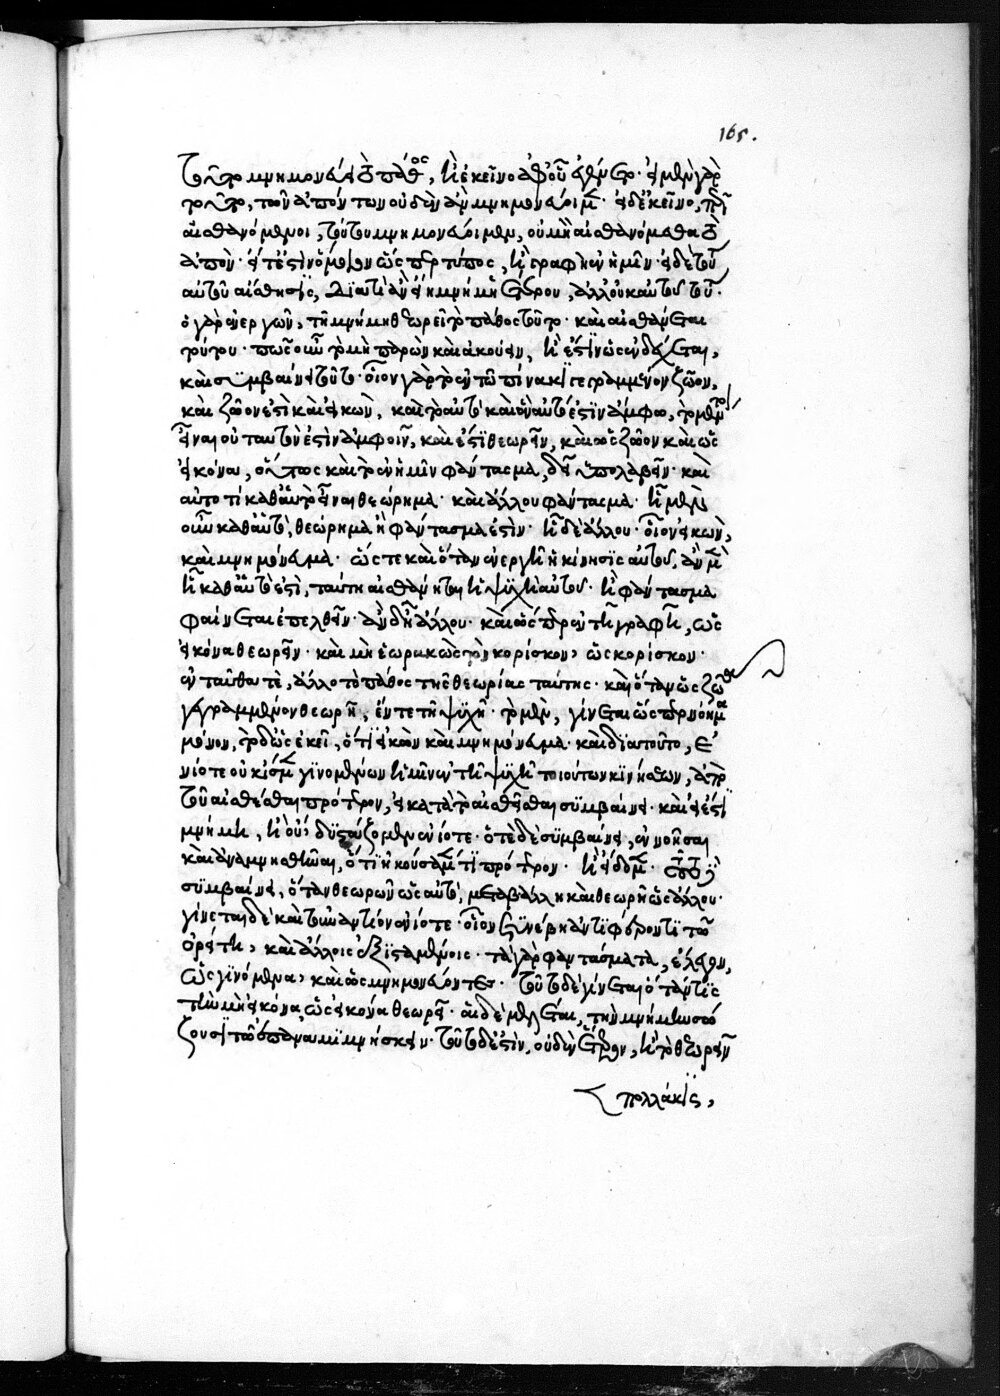 165.
τοῦτο μνημονεύει τὸ πάθος, ἢ ἐκεῖνο ἀφ' οὗ ἐγένετο· εἰ μὲν γὰρ
τοῦτο, τῶν ἀπόντων οὐδὲν ἂν μνημονεύοιμεν· εἰ δ' ἐκεῖνο, πῶς
αἰσθανόμενοι, τοῦτο μνημονεύοιμεν, οὗ μὴ αἰσθανόμεθα τὸ
ἀπόν· εἴτ' ἐστὶν ὅμοιον ὥσπερ τύπος, ἢ γραφὴ ἐν ἡμῖν· ἡ δὲ τοῦ
αὐτοῦ αἴσθησις, διατί ἂν εἴη μνήμη ἑτέρου, ἀλλ' οὐκ αὐτοῦ τού
ὁ γὰρ ἐνεργῶν, τῇ μνήμῃ θεωρεῖ τὸ πάθος τοῦτο· καὶ αἰσθάνεται
τούτου· πῶς οὖν τὸ μὴ παρὸν καὶ ἀκούειν, ἢ ἔστιν ὡς ἐνδέχεται,
καὶ συμβαίνει τοῦτο· οἷον γὰρ τὸ ἐν τῷ πίνακι γεγραμμένον ζῶον,
καὶ ζῶον ἐστὶ καὶ εἰκών, καὶ τὸ αὐτὸ καὶ ἓν αὐτό ἐστιν ἄμφω, τὸ μέντοι
εἶναι οὐ ταυτὸν ἐστὶν ἀμφοῖν, καὶ ἔστι θεωρεῖν, καὶ ὡς ζῶον καὶ ὡς
εἰκόνα, οὕτως καὶ τὸ ἐν ἡμῖν φάντασμα, δεῖ ὑπολαβεῖν· καὶ
αὐτό τι καθ' αὑτὸ εἶναι θεώρημα· καὶ ἄλλου φάντασμα· ᾗ μὲν
οὖν καθ' αὑτό, θεώρημα ἢ φάντασμα ἐστίν· ᾗ δὲ ἄλλου· οἷον εἰκών,
καὶ μνημόνευμα· ὥστε καὶ ὅταν ἐνεργῇ ἡ κίνησις αὐτοῦ, ἂν μὲν
ᾗ καθ' αὑτό ἐστι, ταύτῃ αἰσθάνηται ἡ ψυχὴ αὐτοῦ· ἢ φάντασμα
φαίνεται ἐπελθεῖν· ἂν δ' ᾗ ἄλλου· καὶ ὥσπερ ἐν τῇ γραφῇ, ὡς
εἰκόνα θεωρεῖν· καὶ μὴ ἑωρακὼς τὸν κορίσκον, ὡς κορίσκον·
ἐνταῦθα τὲ, ἄλλο τὸ πάθος τῆς θεωρίας ταύτης· καὶ ὅταν ὡς ζῶον
γεγραμμένον θεωρῇ, ἔν τε τῇ ψυχῇ· τὸ μὲν, γίνεται ὥσπερ νόημα
μόνον, τὸ δ' ὡς ἐκεῖ, ὅτι εἰκὼν καὶ μνημόνευμα· καὶ διατοῦτο, ἐ
νίοτε οὐκ ἴσμεν γινομένων ἡμῖν ἐν τῇ ψυχῇ τοιούτων κινήσεων, ἀπὸ
τοῦ αἰσθέσθαι πρότερον, εἰ κατὰ τὸ αἰσθῆσθαι συμβαίνει· καὶ εἰ ἔστι
μνήμη, ἢ οὔ, διστάζομεν ἐνίοτε· ὁτὲ δὲ συμβαίνει, ἐννοῆσαι
καὶ ἀναμνησθῆναι, ὅτι ἠκούσαμέν τι πρότερον· ἢ εἴδομεν· τοῦτο δὲ
συμβαίνει, ὅταν θεωρῶν ὡς αὐτό, μεταβάλλῃ καὶ θεωρῇ ὡς ἄλλου·
γίνεται δὲ καὶ τοὐναντίον ἐνίοτε· οἷον συνέβη ἀντιφέροντι τῷ
ὀρείτῃ, καὶ ἄλλοις ἐξισταμένοις· τὰ γὰρ φαντάσματα, ἔλεγον,
ὡς γινόμενα, καὶ ὡς μνημονεύοντες· τοῦτο δὲ γίνεται ὅταν τις
τὴν μὴ εἰκόνα, ὡς εἰκόνα θεωρῇ· αἱ δὲ μελέται, τὴν μνήμην σώ
ζουσι τῷ ἐπαναμιμνήσκειν· τοῦτο δ' ἐστὶν, οὐδὲν ἕτερον, ἢ τὸ θεωρεῖν
πολλάκις,